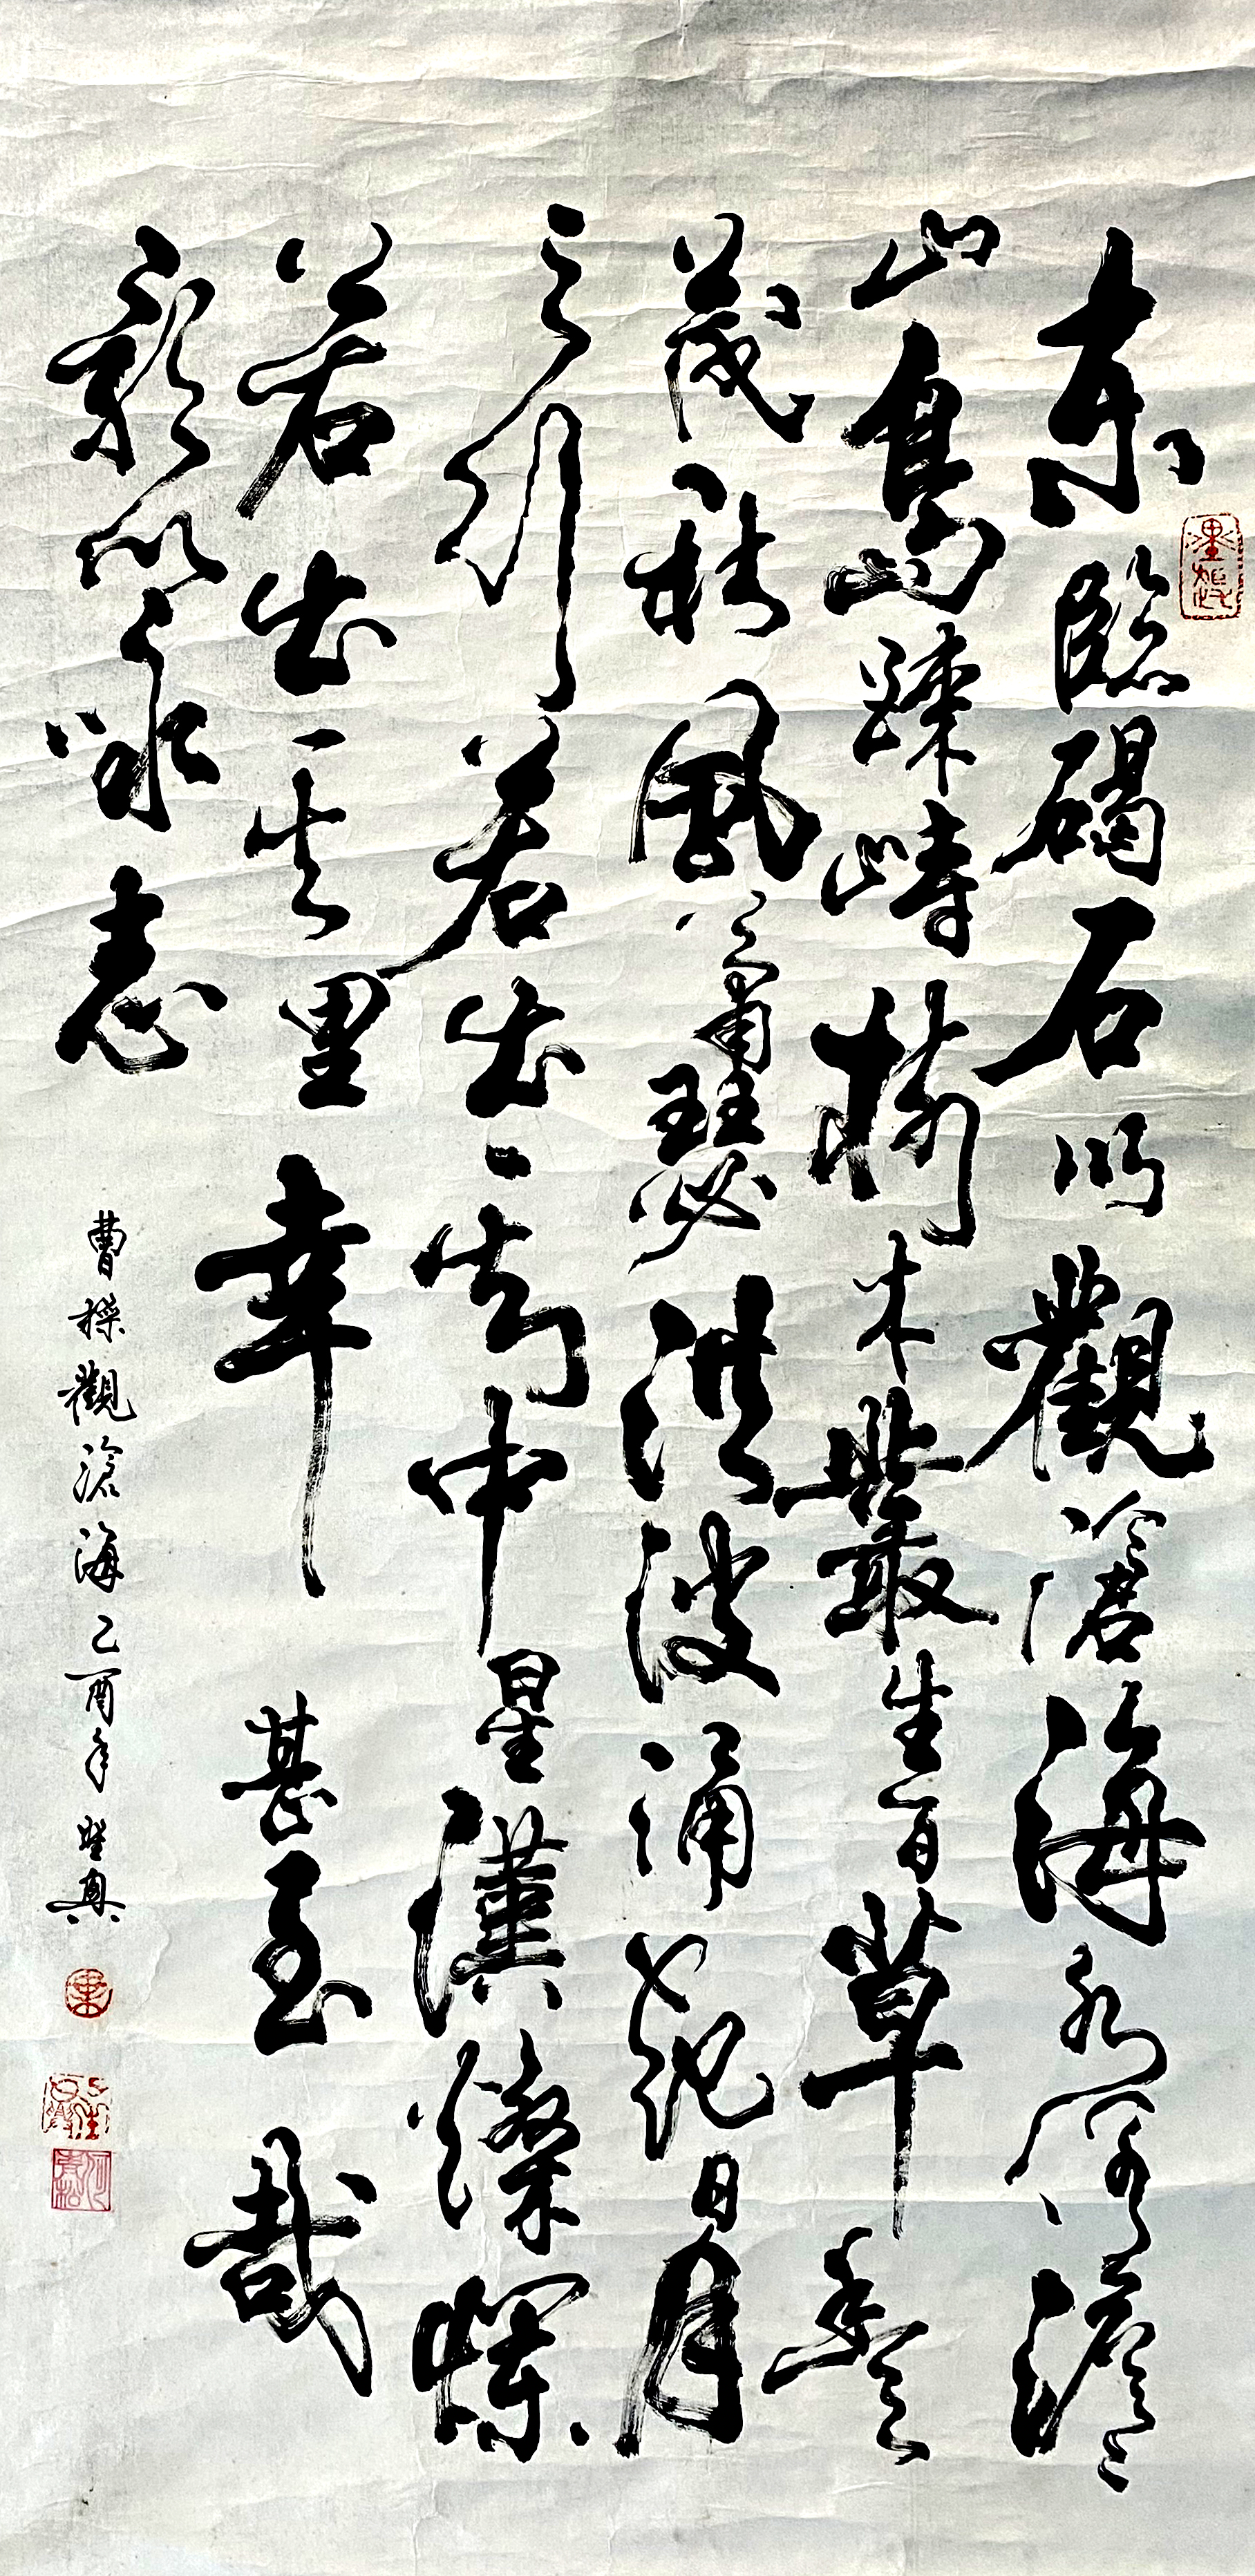 東臨碣石以觀滄海水何澹澹
山島竦峙樹木叢生百草豐
茂秋風蕭瑟洪波涌起日月
之行若出其中星漢燦爛
若出其里幸甚至哉
歌以咏志
曹操觀滄海乙酉年